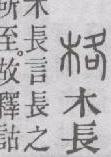 格木長
木長言長之
所至。故釋詁